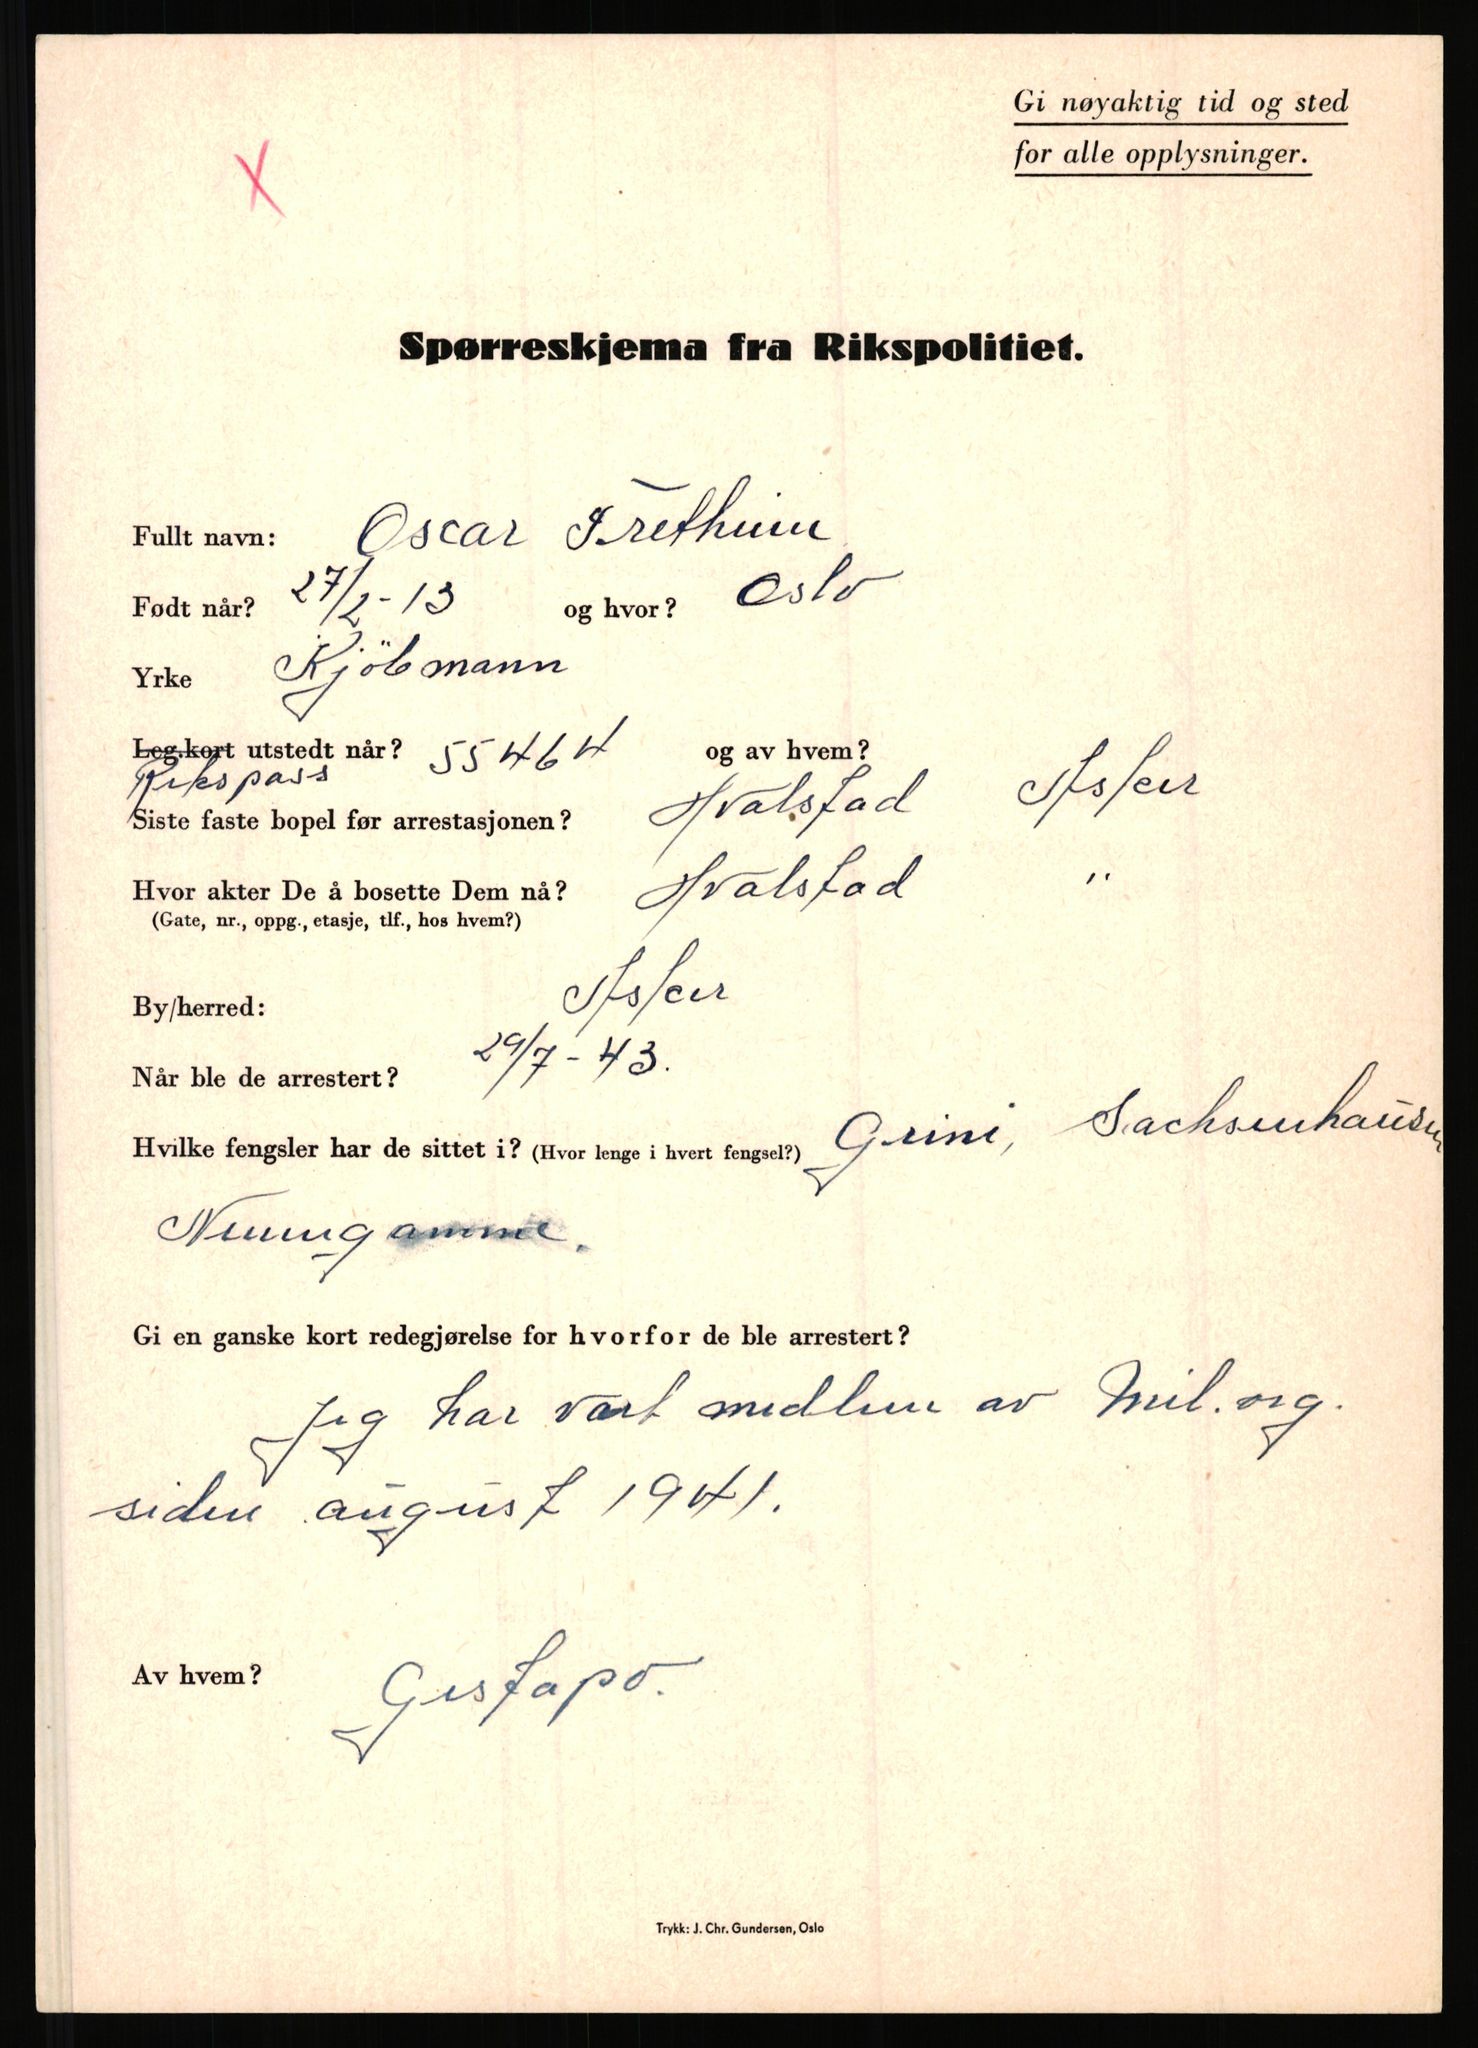 Gi nøyaktig tid og sted
for alle opplysninger.
X
Spørreskjema fra Rikspolitiet.
Fullt navn: Oscar Trethun
Født når? 27/2-13 og hvor? Oslo
Yrke Kjöbmann
Leg.kort utstedt når? 55464 og av hvem?
Rikspass
Siste faste bopel før arrestasjonen? Hvalstad Asker
Hvor akter De å bosette Dem nå? Hvalstad "
(Gate, nr., oppg., etasje, tlf., hos hvem?)
By/herred: Asker
Når ble de arrestert? 29/7-43.
Hvilke fengsler har de sittet i? (Hvor lenge i hvert fengsel?) Grini, Sachsenhausen
Neuengamme.
Gi en ganske kort redegjørelse for hvorfor de ble arrestert?
Jeg har vært medlem av Mil.org.
siden august 1941.
Av hvem? Gestapo.
Trykk: J. Chr. Gundersen, Oslo